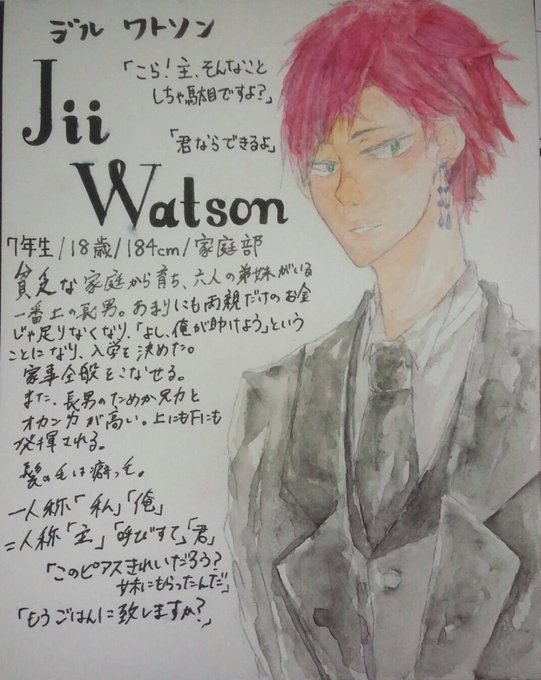 ジル ワトソン
Jii
Watson
「こら！主、そんなこと
しちゃ駄目ですよ？」
「君ならできるよ」
7年生/18歳/184cm/家庭部
貧乏な家庭から育ち、六人の弟妹がいる
一番上の長男。あまりにも両親だけのお金
じゃ足りなくなり、「よし、俺が助けよう」という
ことになり、入学を決めた。
家事全般をこなせる。
また、長男のためか兄力と
オカン力が高い。上にも下にも
発揮される。
髪の毛は癖っ毛。
一人称「私」「俺」
二人称「主」「呼びすて」「君」
「このピアスきれいだろう？
妹にもらったんだ」
「もうごはんに致しますか？」